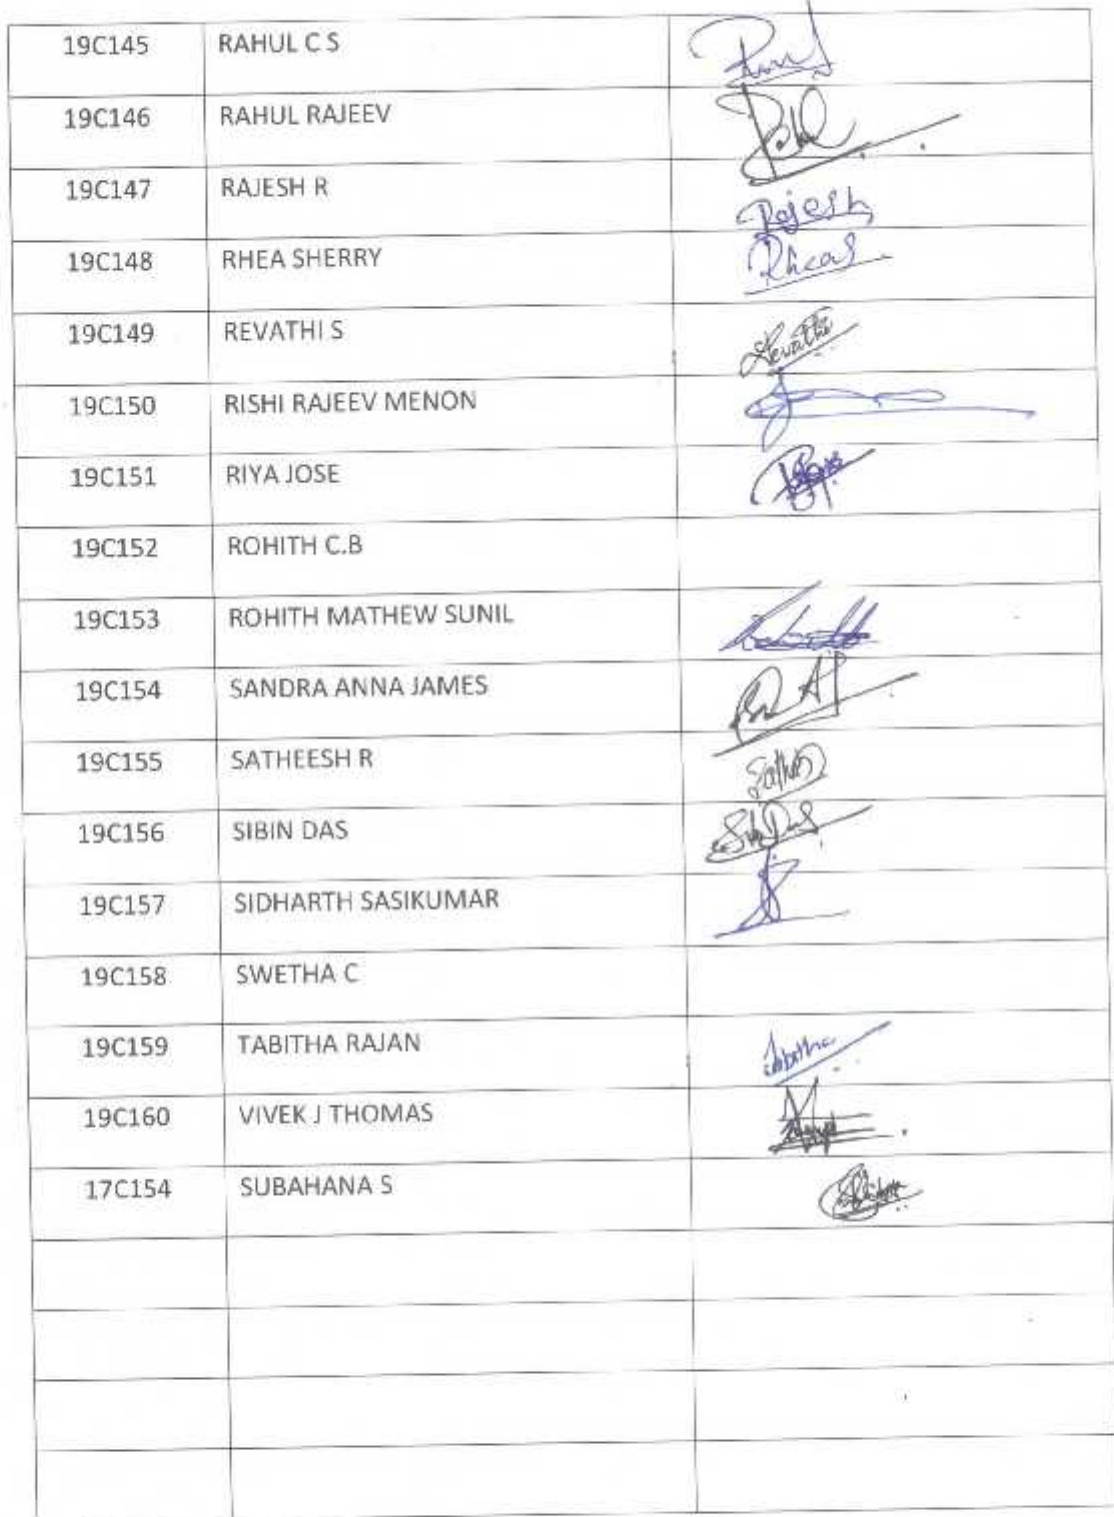 19C145 RAHUL C S
19C146 RAHUL RAJEEV
19C147 RAJESH R Rajesh
19C148 RHEA SHERRY Rheas
19C149 REVATHI S Revathi
19C150 RISHI RAJEEV MENON
19C151 RIYA JOSE
19C152 ROHITH C.B
19C153 ROHITH MATHEW SUNIL
19C154 SANDRA ANNA JAMES
19C155 SATHEESH R
19C156 SIBIN DAS
19C157 SIDHARTH SASIKUMAR
19C158 SWETHA C
19C159 TABITHA RAJAN Tabitha
19C160 VIVEK J THOMAS
17C154 SUBAHANA S